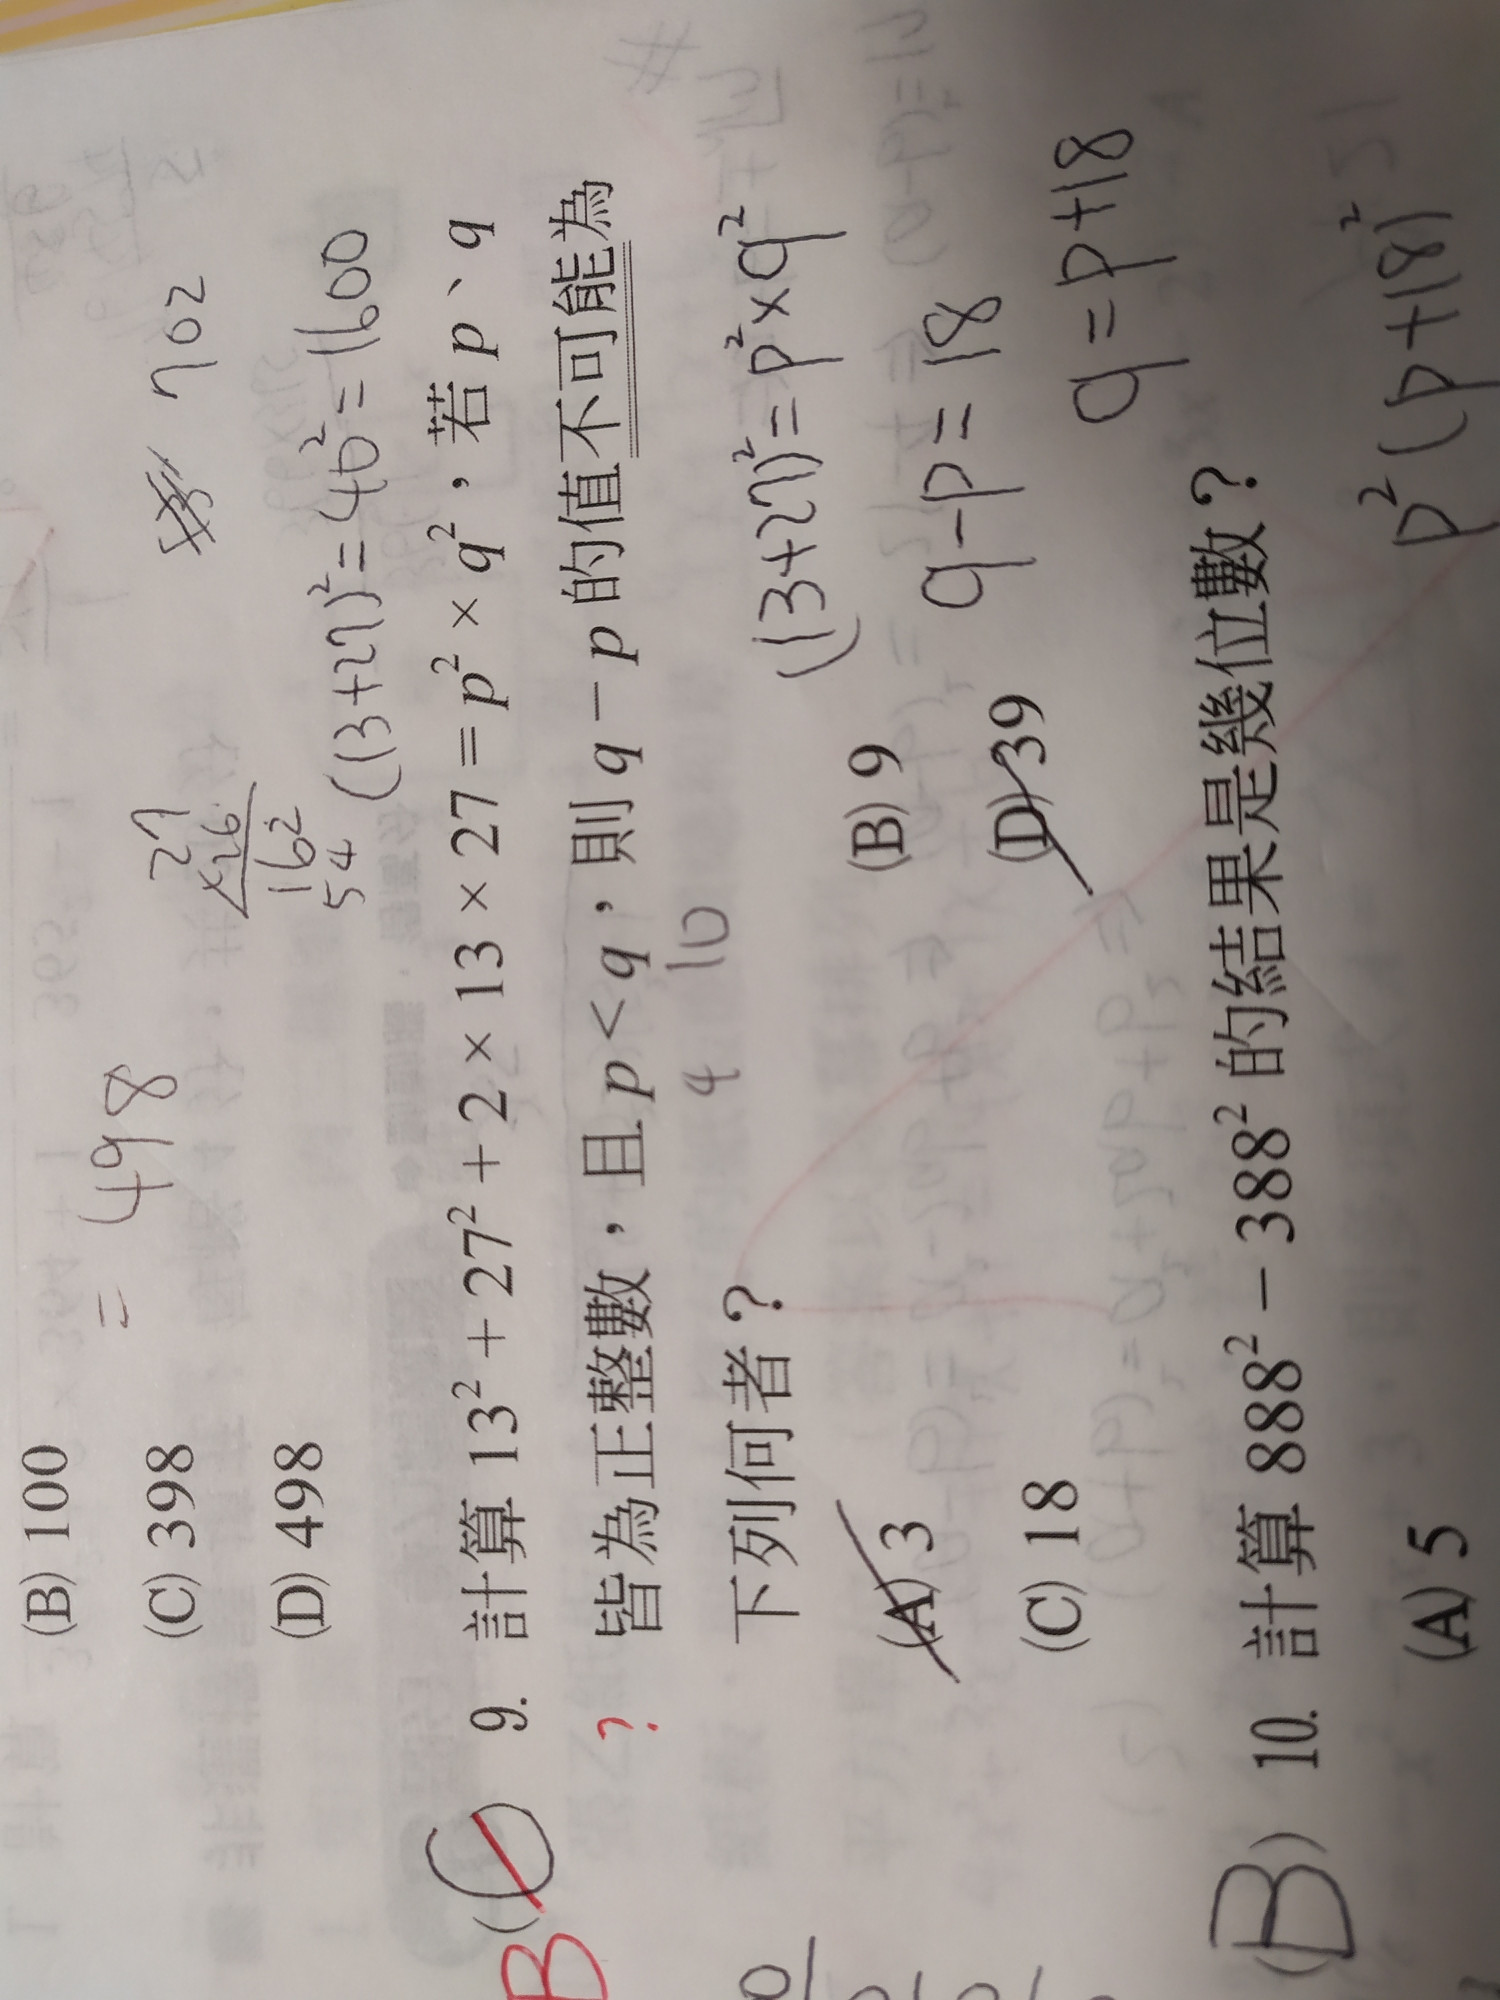 (B) 100
= 498
(C) 398
27
×26
162
54
702
(D) 498
(13+27)²=40²=1600
B (C) 9. 計算 13² + 27² + 2 × 13 × 27 = p² × q²，若 p、q
? 皆為正整數，且 p < q，則 q − p 的值不可能為
4 10
下列何者？
(13+27)²=p²×q²
(A) 3 (B) 9
q−p=18
(C) 18 (D) 39
q=p+18
(B) 10. 計算 888² − 388² 的結果是幾位數？
p²(p+18)²
(A) 5